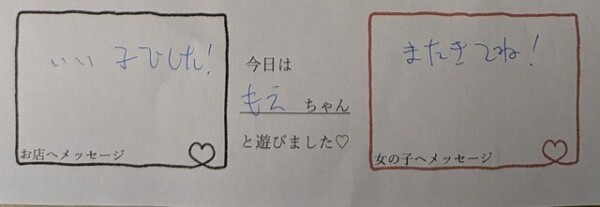 いい子でした!
お店へメッセージ
今日は
もえ ちゃん
と遊びました♡
またきてね!
女の子へメッセージ